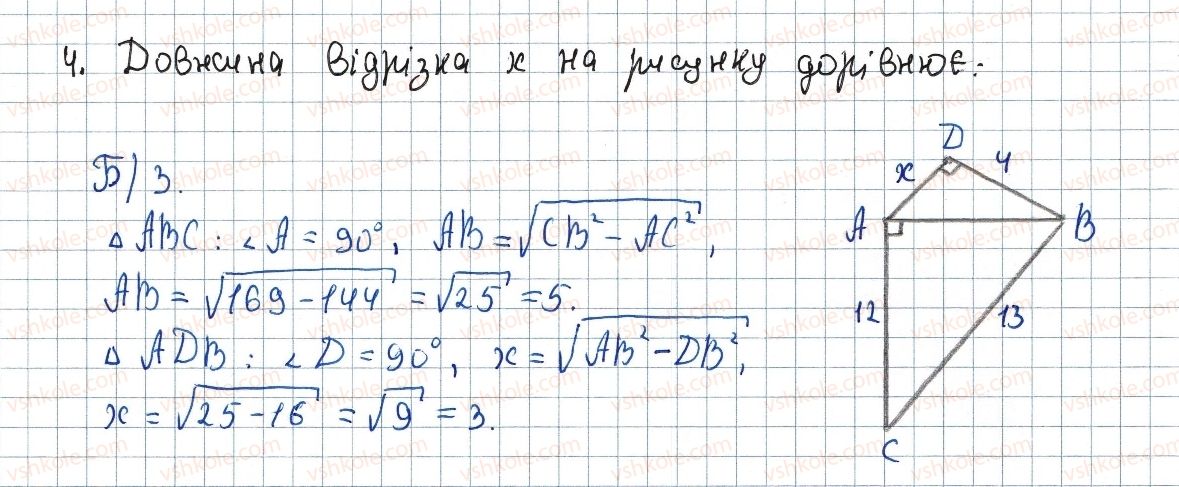 4. Довжина відрізка x на рисунку дорівнює:
Б) 3.
△ ABC : ∠ A = 90°, AB = √(CB² − AC²),
AB = √(169 − 144) = √25 = 5.
△ ADB : ∠ D = 90°, x = √(AB² − DB²),
x = √(25 − 16) = √9 = 3.
D
x 4
A B
12 13
C
vshkole.com